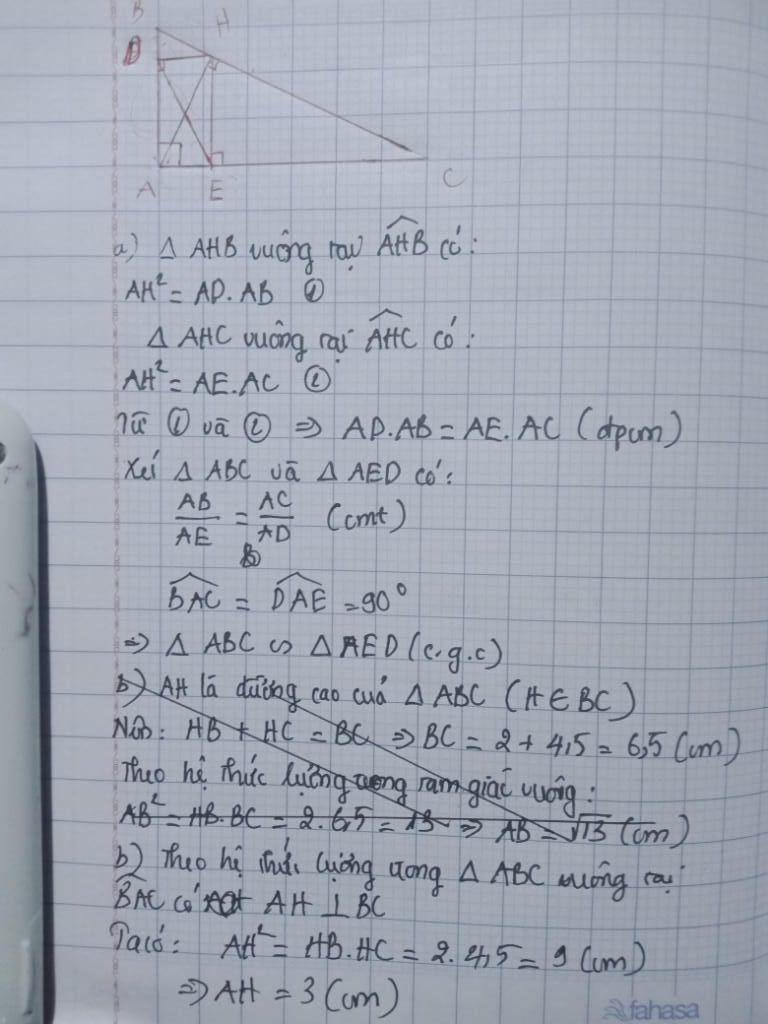 B
H
D
A
E
C
a) Δ AHB vuông tại AHB có:
AH² = AD.AB ①
Δ AHC vuông tại AHC có:
AH² = AE.AC ②
Từ ① và ② ⇒ AD.AB = AE.AC (đpcm)
Xét Δ ABC và Δ AED có:
AB/AE = AC/AD (cmt)
BAC = DAE = 90°
⇒ Δ ABC ∽ Δ AED (c.g.c)
b) AH là đường cao của Δ ABC (H ∈ BC)
Nên: HB + HC = BC ⇒ BC = 2 + 4,5 = 6,5 (cm)
Theo hệ thức lượng trong tam giác vuông:
AB² = HB.BC = 2.6,5 = 13 ⇒ AB = √13 (cm)
b) Theo hệ thức lượng trong Δ ABC vuông tại
BAC có AH ⊥ BC
Ta có: AH² = HB.HC = 2.4,5 = 9 (cm)
⇒ AH = 3 (cm)
fahasa